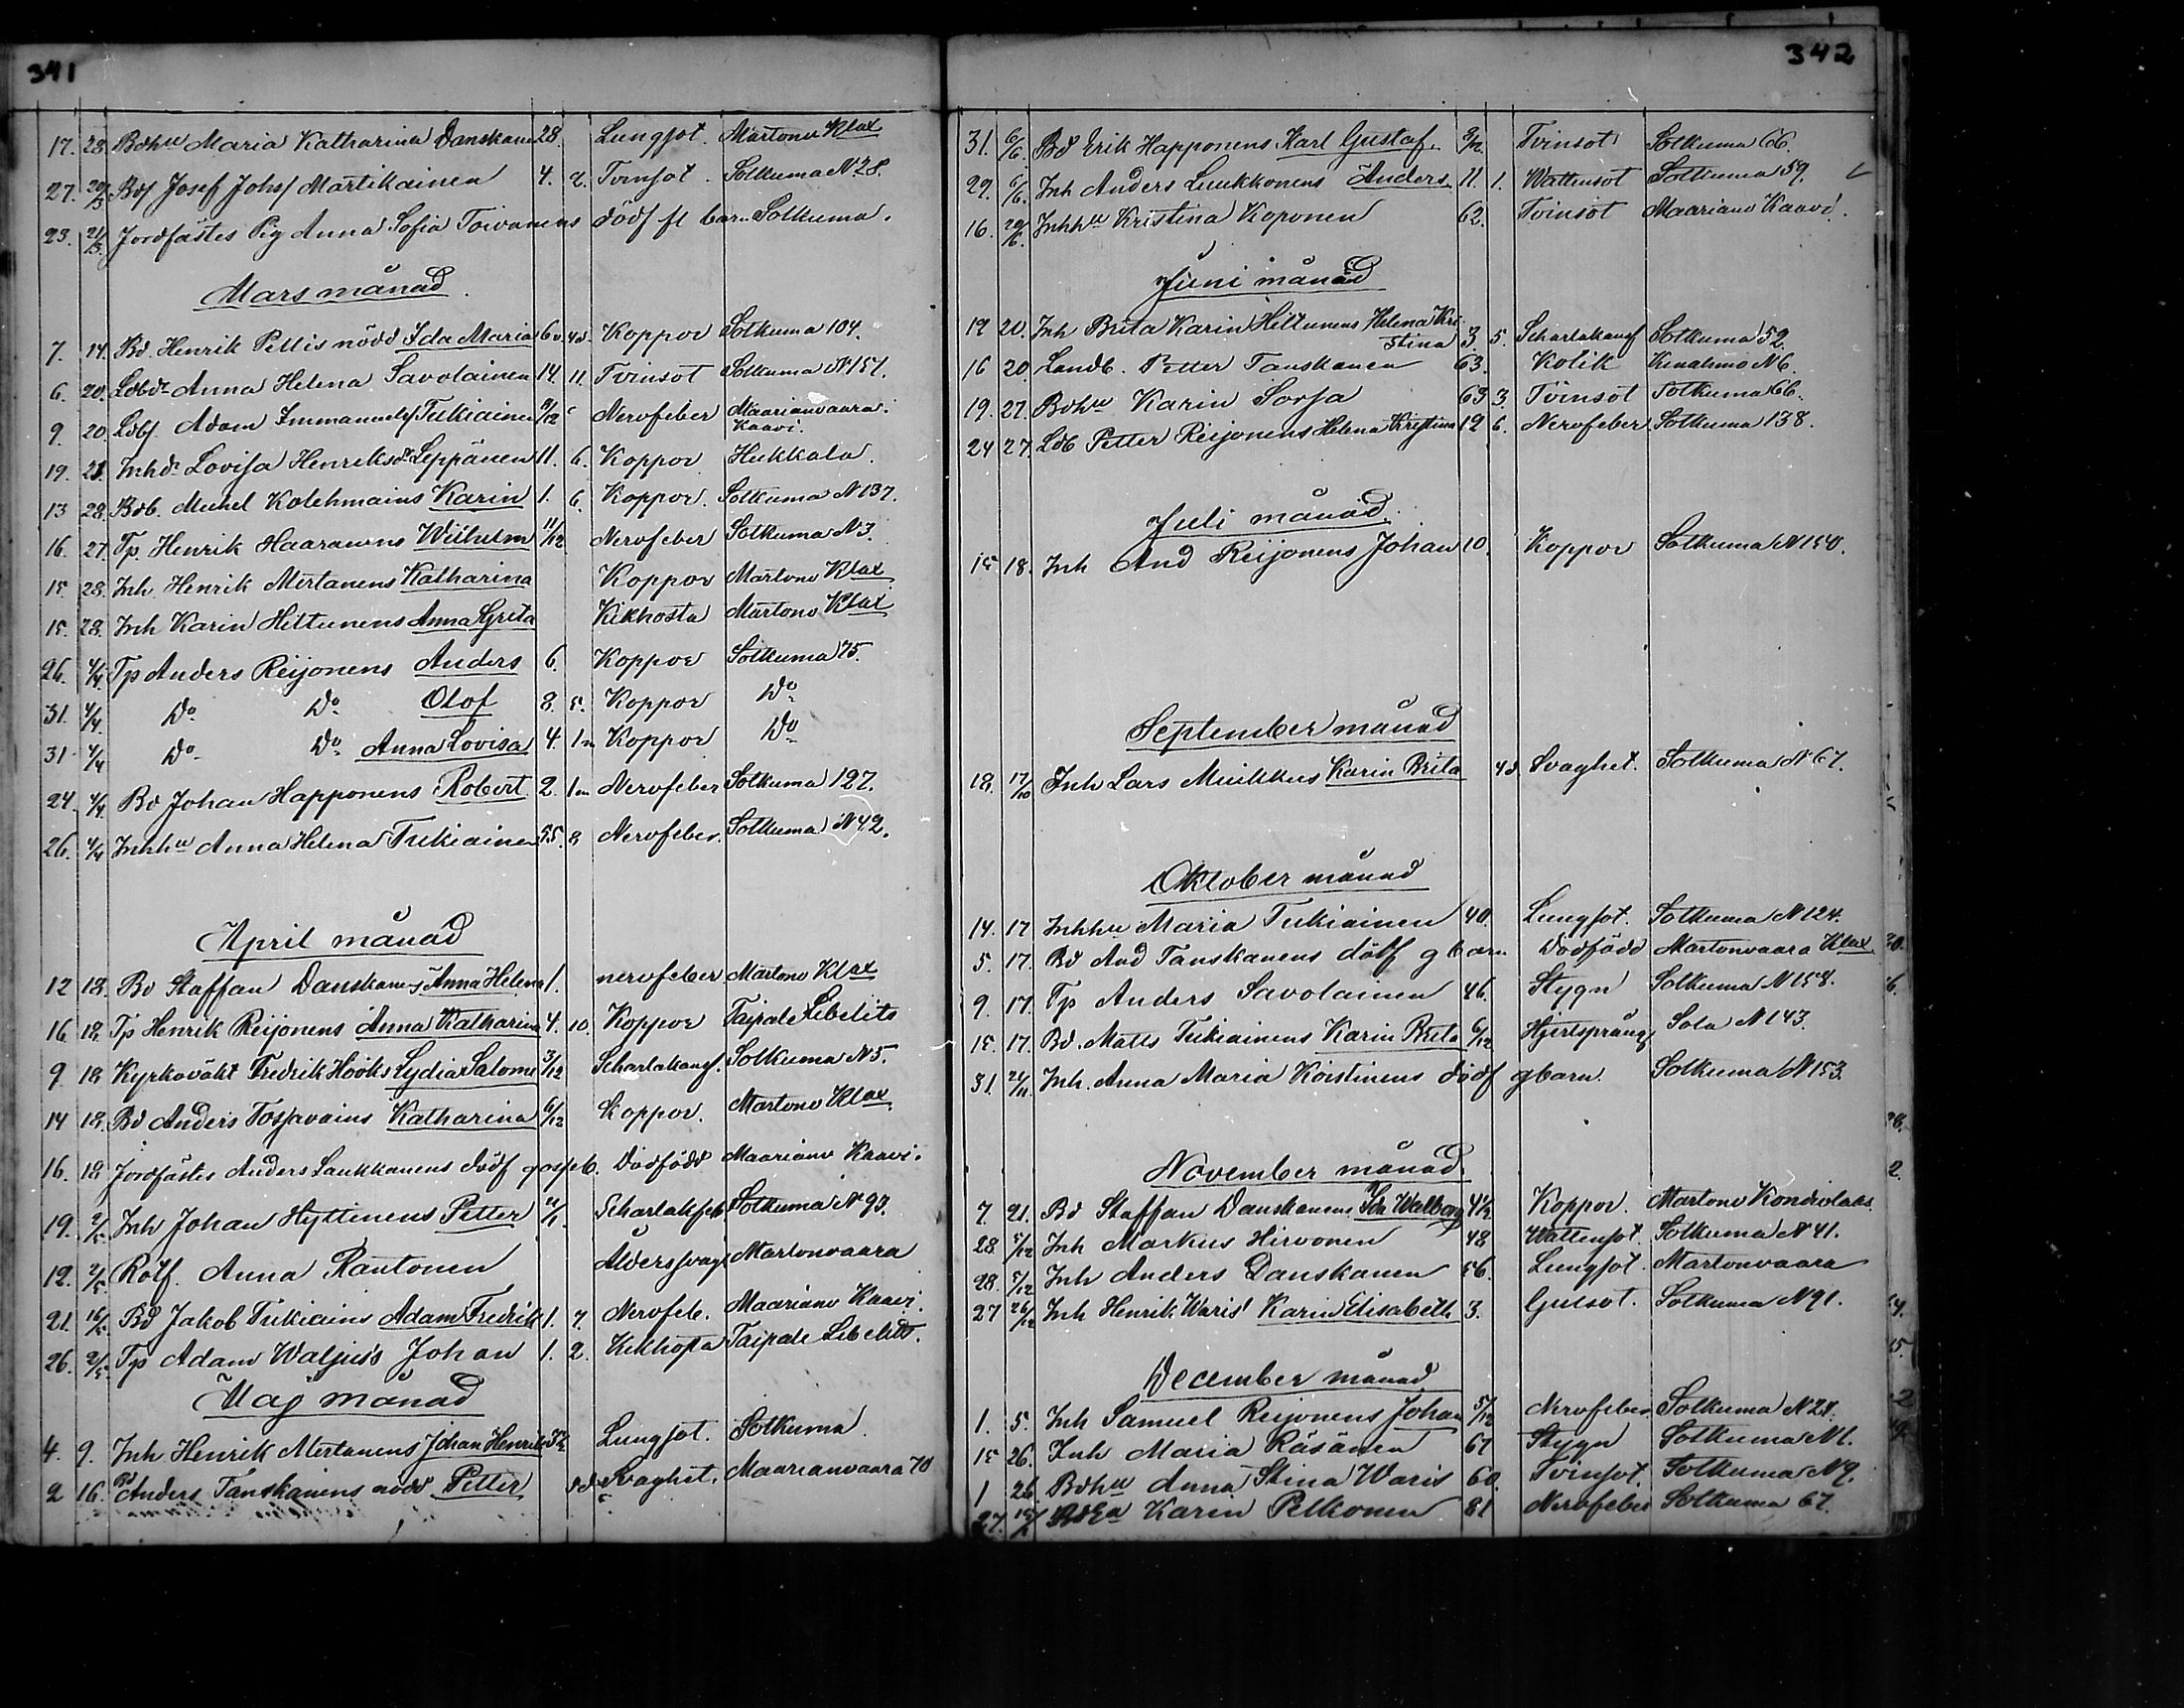 341
17. 28. Bdhu Maria Katharina Danskanen 28. Lungsot. Martono Klax
27. 20/3 Bds Josef Johs Martikainen 4. 2. Tvinsot. Sotkuma No 28.
23. 21/3. Jordfästes Pig Anna Sofia Toivanens dödf fl barn Sotkuma.
Mars månad
7. 14. Bd. Henrik Pellis nödd Ida Maria 6v. 4d. Koppor Sotkuma 104.
6. 20. Ldbdr Anna Helena Savolainen 14. 11. Tvinsot Sotkuma No 157.
9. 20 Ldbs. Adam Immanuels Tukiainen 9/12 Nervfeber Maarianvaara. Kaavi.
19. 28. Inhdr Lovisa Henriksdr Leppänen 11. 6. Koppor Hukkala.
13 28. Bdb. Michel Kolehmains Karin 1. 6. Koppor. Sotkuma N 137.
16. 27. Tp. Henrik Haaranens Wilhelm 11/12 Nervfeber Sotkuma N 3.
15. 28. Inh. Henrik Mertanens Katharina Koppor Martono Klax
15. 28. Inh Karin Hiltunens Anna Greta Kikhosta Martono Klax
26. 4/4. Tp Anders Reijonens Anders 6. Koppor Sotkuma 75.
31. 4/4. Do Do Olof 8. 5. Koppor Do
31. 4/4 Do Do Anna Lovisa 4. 1m Koppor Do
24. 4/4. Bd Johan Happonens Robert 2. 1m Nervfeber Sotkuma 127.
26. 4/4 Inhhu Anna Helena Tukiainen 55. 8 Nervfeber. Sotkuma N 42.
April månad
12 18. Bd Staffan Danskanens Anna Helena 1. nervfeber Martono Klax
16 18. Tp Henrik Reijonens Anna Katharina 4. 10. Koppor Taipale Libelits
9 18 Kyrkovakt Fredrik Hööks Lydia Salome 3/12 Scharlakansf. Sotkuma N 5.
14 18. Bd Anders Tossavains Katharina 6/12 Koppor. Martono Klax.
16. 18 Jordfästes Anders Laukkanens dödf gosseb. Dödfödd Maariano Kaavi.
19. 2/5. Inh Johan Hyttinens Petter Scharlakfeb. Sotkuma N 93.
12. 2/5. Rotf. Anna Rautonen Ålderssvagh Martonvaara
21. 16/5. Bd Jakob Tukiains Adam Fredrik 1. 7. Nervfeb. Maariano Kaavi.
26. 2/5. Tp Adam Waljus's Johan 1. 2. Kikhosta Taipale Libelits.
Maj månad
4. 9. Inh. Henrik Mertanens Johan Henrik Lungsot. Sotkuma.
2 16. Bd Anders Tanskanens nödd Petter Svaghet. Maarianvaara 70
342
31. 6/6. Bd Erik Happonens Karl Gustaf. Tvinsot Sotkuma 66.
29. 6/6. Inh Anders Luukkonens Anders 11. 1. Wattusot Sotkuma 59.
16. 20/6. Inhhu Kristina Koponen 62. Tvinsot Maariano Kaavi.
Juni månad
19 20. Inh Brita Karin Hiltunens Helena Kri-
stina 3. 5. Scharlakansf Sotkuma 52.
16 20. Landb. Petter Tanskanen 63. Kolik Kinahmo N 6.
19. 27. Bdhu Karin Sorsa 63 3. Tvinsot Sotkuma 66.
24 27. Ldb Petter Reijonens Helena Kristina 12 6. Nervfeber Sotkuma 138.
Juli månad.
15 18. Inh And Reijonens Johan 10. Koppor Sotkuma N 150.
September månad
18. 17/10 Inh Lars Miuikkus Karin Brita 4d. Svaghet. Sotkuma N 67.
Oktober månad
14. 17 Inhhu Maria Tukiainen 40. Lungsot. Sotkuma N 124.
5. 17. Bd And Tanskanens dödf g barn Dödfödd Martonvaara Klax
9. 17. Tp Anders Savolainen 46. Stygn Sotkuma N 158.
15. 17. Bd. Matts Tukiainens Karin Brita 6/12 Hjertsprång Sola N 143.
31. 21/11. Inh. Anna Maria Koistinens dödf gbarn. Sotkuma N 153.
November månad
7. 21. Bd Staffan Danskanens Ida Walborg 4½ Koppor. Martono Kondiolaks
28. 5/12 Inh Markus Hirvonen 48 Wattusot. Sotkuma N 41.
28. 5/12 Inh Anders Danskanen 56. Lungsot. Martonvaara
27 26/12 Inh Henrik Waris' Karin Elisabeth 3. Gulsot. Sotkuma N 91.
December månad
1. 5. Inh Samuel Reijonens Johan 5/12 Nervfeber Sotkuma N 28.
15 26. Inh Maria Räsänen 67 Stygn Sotkuma N 1.
1 26 Bdhu Anna Stina Waris 60. Tvinsot. Sotkuma N 9.
27. Karin Pelkonen 81 Nervfeber Sotkuma 67.